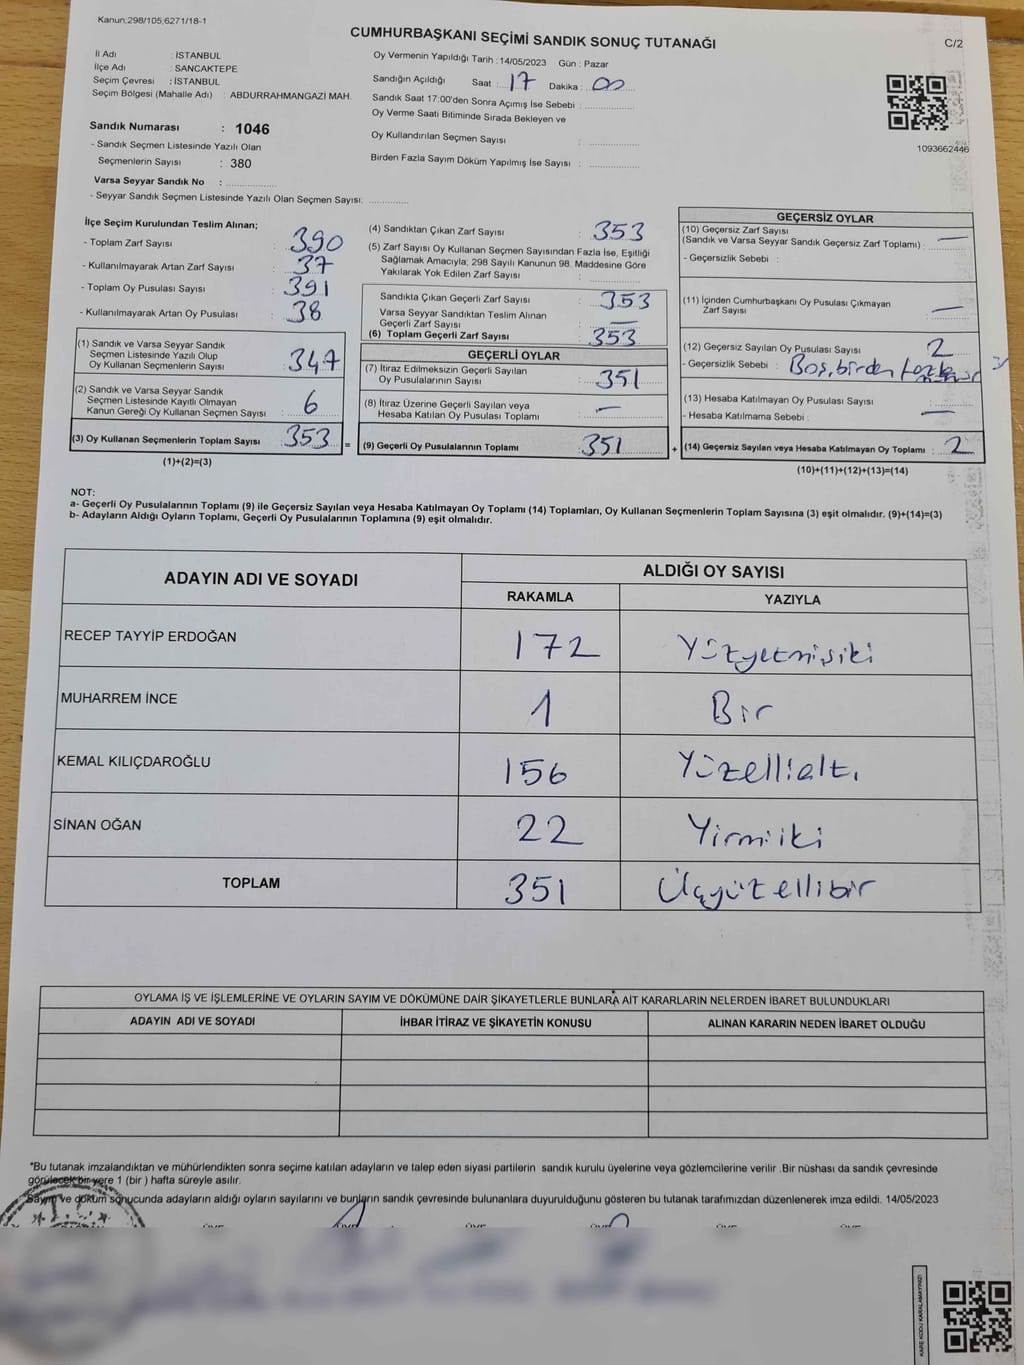 Kanun:298/105;6271/18-1
CUMHURBAŞKANI SEÇİMİ SANDIK SONUÇ TUTANAĞI
C/2
İl Adı : İSTANBUL
İlçe Adı : SANCAKTEPE
Seçim Çevresi : İSTANBUL
Seçim Bölgesi (Mahalle Adı) : ABDURRAHMANGAZİ MAH.
Oy Vermenin Yapıldığı Tarih : 14/05/2023 Gün : Pazar
Sandığın Açıldığı Saat : 17 Dakika : 00
Sandık Saat 17:00'den Sonra Açımış İse Sebebi :
Oy Verme Saati Bitiminde Sırada Bekleyen ve
Oy Kullandırılan Seçmen Sayısı :
Birden Fazla Sayım Döküm Yapılmış İse Sayısı :
1093662446
Sandık Numarası : 1046
- Sandık Seçmen Listesinde Yazılı Olan
Seçmenlerin Sayısı : 380
Varsa Seyyar Sandık No :
- Seyyar Sandık Seçmen Listesinde Yazılı Olan Seçmen Sayısı:
İlçe Seçim Kurulundan Teslim Alınan;
- Toplam Zarf Sayısı : 390
- Kullanılmayarak Artan Zarf Sayısı : 37
- Toplam Oy Pusulası Sayısı : 391
- Kullanılmayarak Artan Oy Pusulası : 38
(1) Sandık ve Varsa Seyyar Sandık
Seçmen Listesinde Yazılı Olup
Oy Kullanan Seçmenlerin Sayısı : 347
(2) Sandık ve Varsa Seyyar Sandık
Seçmen Listesinde Kayıtlı Olmayan
Kanun Gereği Oy Kullanan Seçmen Sayısı : 6
(3) Oy Kullanan Seçmenlerin Toplam Sayısı : 353 =
(1)+(2)=(3)
(4) Sandıktan Çıkan Zarf Sayısı : 353
(5) Zarf Sayısı Oy Kullanan Seçmen Sayısından Fazla İse, Eşitliği
Sağlamak Amacıyla; 298 Sayılı Kanunun 98. Maddesine Göre
Yakılarak Yok Edilen Zarf Sayısı :
Sandıkta Çıkan Geçerli Zarf Sayısı : 353
Varsa Seyyar Sandıktan Teslim Alınan
Geçerli Zarf Sayısı : —
(6) Toplam Geçerli Zarf Sayısı : 353
GEÇERLİ OYLAR
(7) İtiraz Edilmeksizin Geçerli Sayılan
Oy Pusulalarının Sayısı : 351
(8) İtiraz Üzerine Geçerli Sayılan veya
Hesaba Katılan Oy Pusulası Toplamı : —
(9) Geçerli Oy Pusulalarının Toplamı : 351 +
GEÇERSİZ OYLAR
(10) Geçersiz Zarf Sayısı
(Sandık ve Varsa Seyyar Sandık Geçersiz Zarf Toplamı) : —
- Geçersizlik Sebebi :
(11) İçinden Cumhurbaşkanı Oy Pusulası Çıkmayan
Zarf Sayısı : —
(12) Geçersiz Sayılan Oy Pusulası Sayısı : 2
- Geçersizlik Sebebi : Boş, birden
(13) Hesaba Katılmayan Oy Pusulası Sayısı :
- Hesaba Katılmama Sebebi : —
(14) Geçersiz Sayılan veya Hesaba Katılmayan Oy Toplamı : 2
(10)+(11)+(12)+(13)=(14)
NOT:
a- Geçerli Oy Pusulalarının Toplamı (9) ile Geçersiz Sayılan veya Hesaba Katılmayan Oy Toplamı (14) Toplamları, Oy Kullanan Seçmenlerin Toplam Sayısına (3) eşit olmalıdır. (9)+(14)=(3)
b- Adayların Aldığı Oyların Toplamı, Geçerli Oy Pusulalarının Toplamına (9) eşit olmalıdır.
ADAYIN ADI VE SOYADI
ALDIĞI OY SAYISI
RAKAMLA YAZIYLA
RECEP TAYYİP ERDOĞAN 172 Yüzyetmişiki
MUHARREM İNCE 1 Bir
KEMAL KILIÇDAROĞLU 156 Yüzellialtı
SİNAN OĞAN 22 Yirmiiki
TOPLAM 351 Üçyüzellibir
OYLAMA İŞ VE İŞLEMLERİNE VE OYLARIN SAYIM VE DÖKÜMÜNE DAİR ŞİKAYETLERLE BUNLARA AİT KARARLARIN NELERDEN İBARET BULUNDUKLARI
ADAYIN ADI VE SOYADI İHBAR İTİRAZ VE ŞİKAYETİN KONUSU ALINAN KARARIN NEDEN İBARET OLDUĞU
*Bu tutanak imzalandıktan ve mühürlendikten sonra seçime katılan adayların ve talep eden siyasi partilerin sandık kurulu üyelerine veya gözlemcilerine verilir .Bir nüshası da sandık çevresinde
görülecek bir yere 1 (bir ) hafta süreyle asılır.
Sayım ve döküm sonucunda adayların aldığı oyların sayılarını ve bunların sandık çevresinde bulunanlara duyurulduğunu gösteren bu tutanak tarafımızdan düzenlenerek imza edildi. 14/05/2023
T.C.
KARE KODU KARALAMAYINIZ!